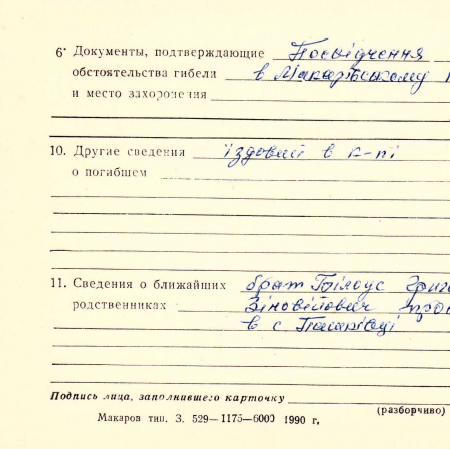 6· Документы, подтверждающие Посвідчення
обстоятельства гибели в Макарівському
и место захоронения
10. Другие сведения їздовий в к-пі
о погибшем
11. Сведения о ближайших брат Білоус Григ
родственниках Зіновійович про
в с
Подпись лица, заполнившего карточку
(разборчиво)
Макаров тип. З. 529—1175—6000 1990 г.